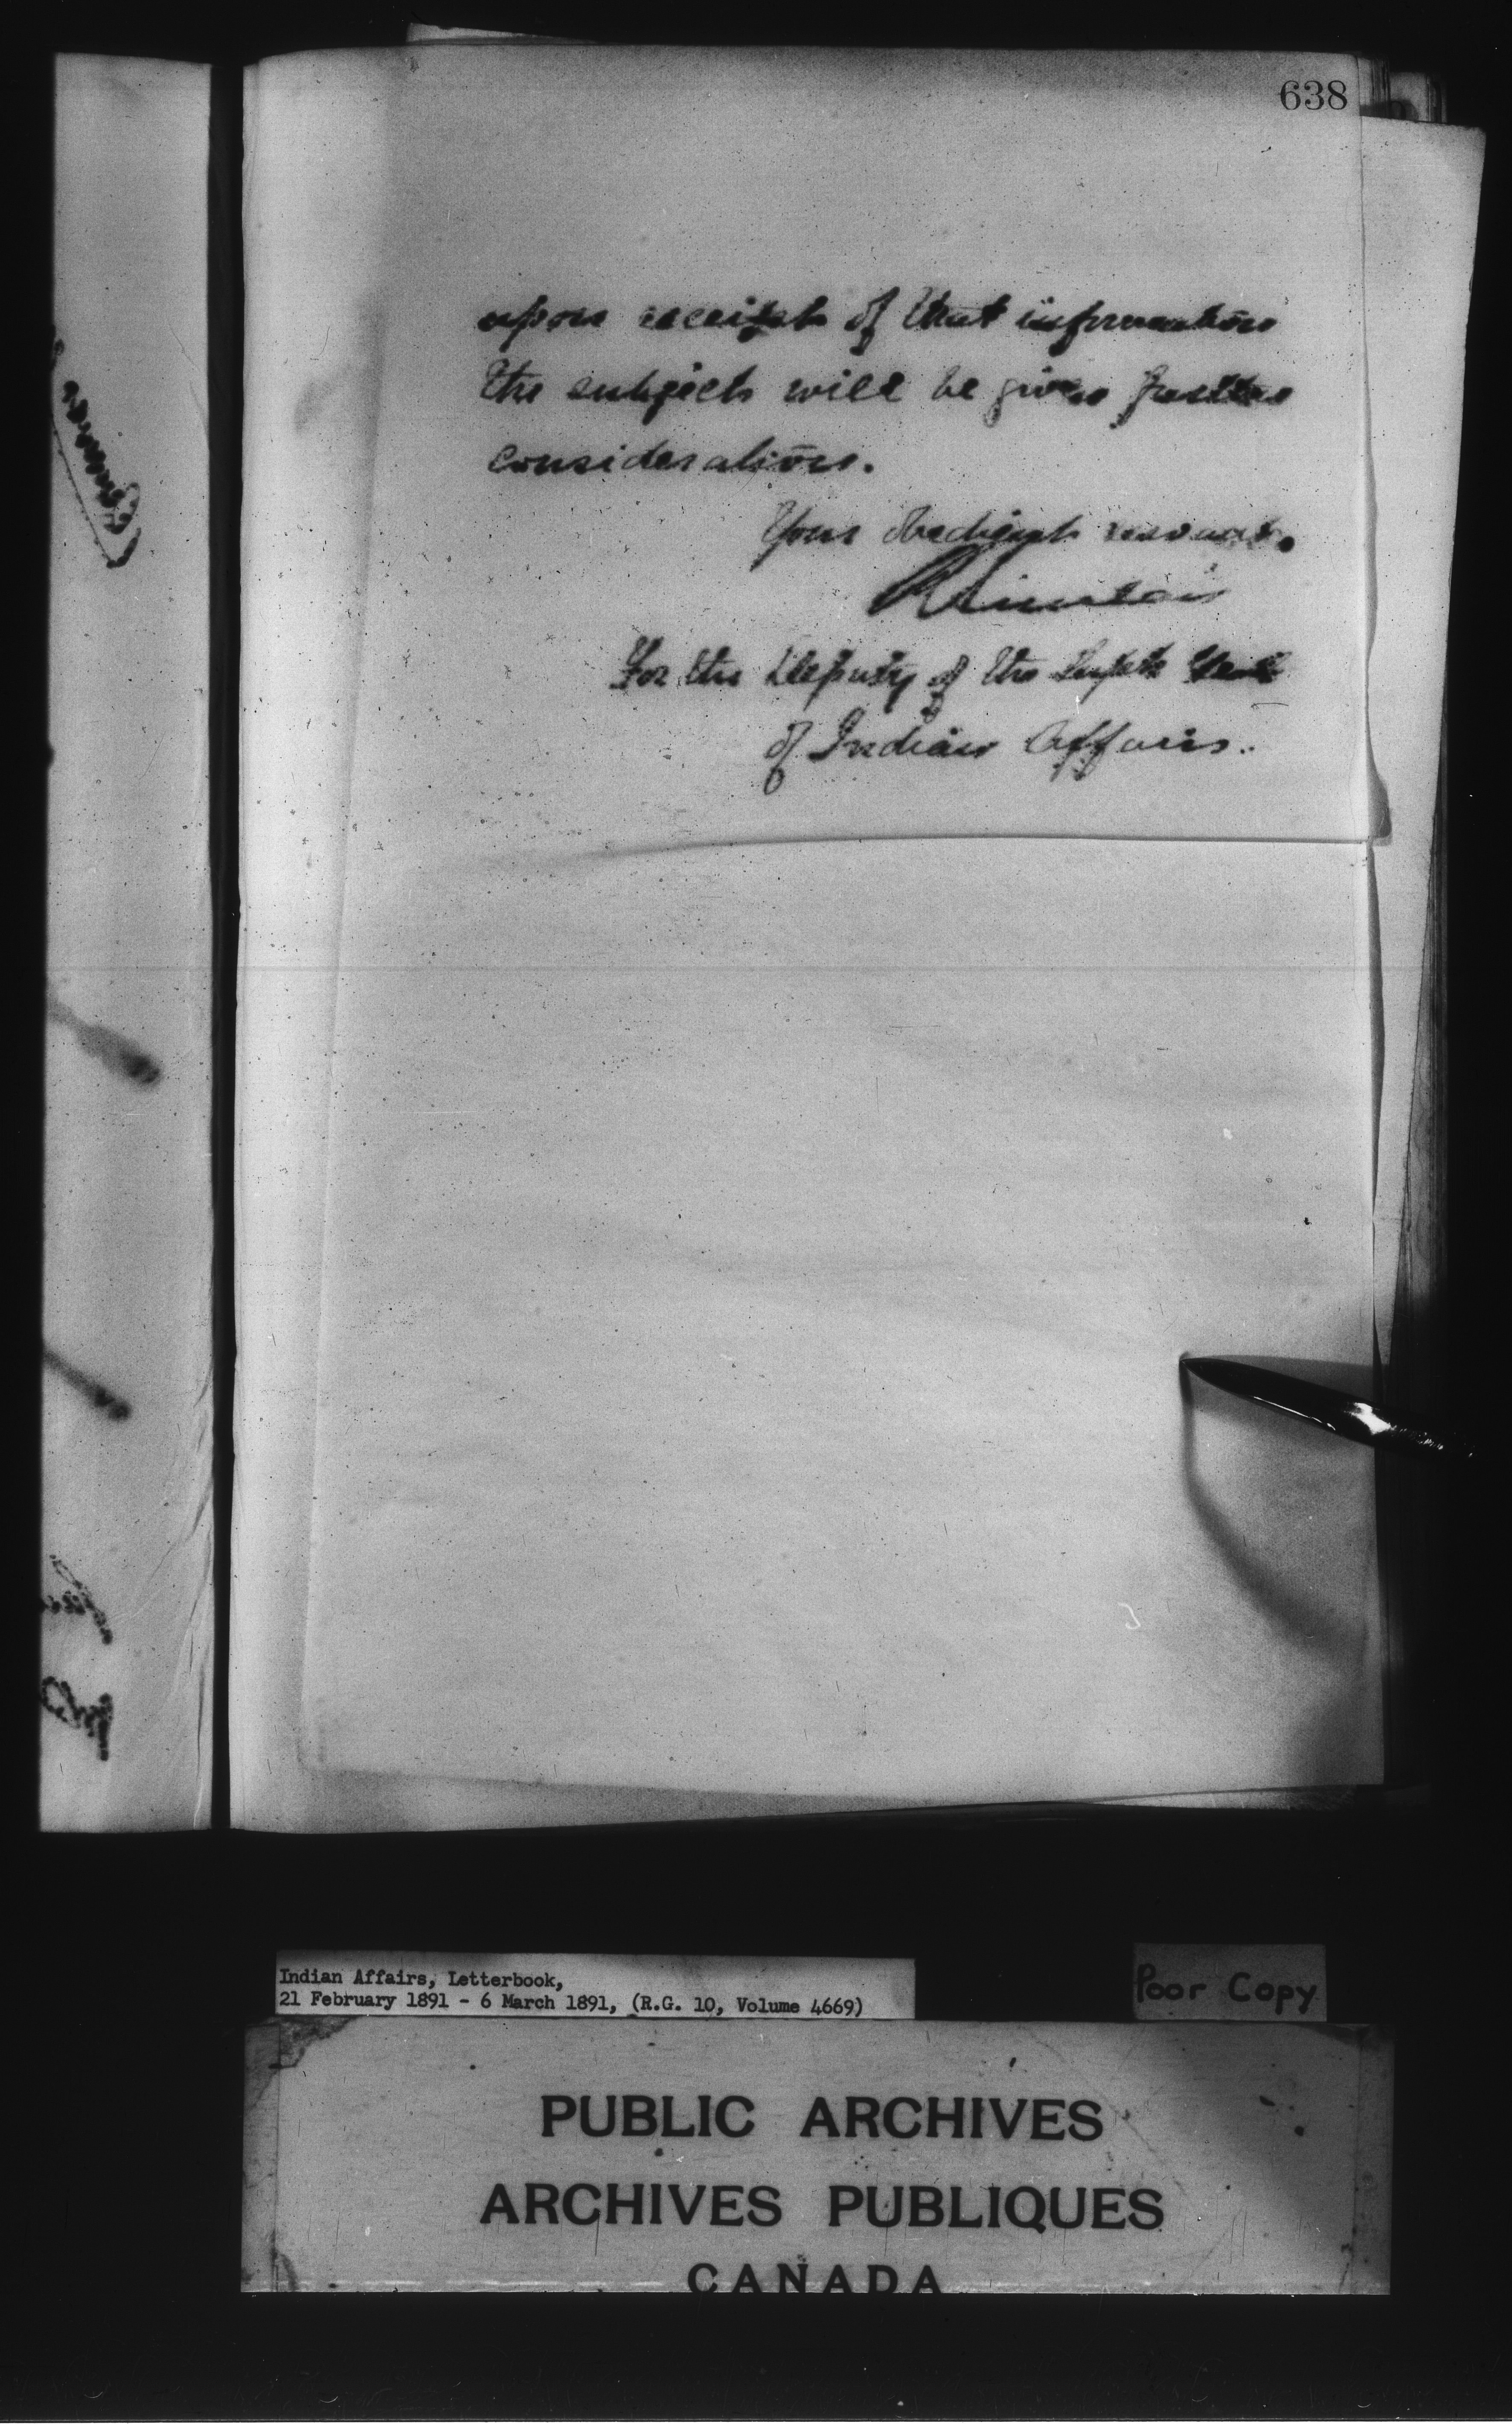 638
upon receipt of that information
the subject will be given further
consideration.
Your obedient servant.
R Sinclair
For the Deputy of the Supt Genl
of Indian Affairs.
Indian Affairs, Letterbook,
21 February 1891 - 6 March 1891, (R.G. 10, Volume 4669)
Poor Copy
PUBLIC ARCHIVES
ARCHIVES PUBLIQUES
CANADA